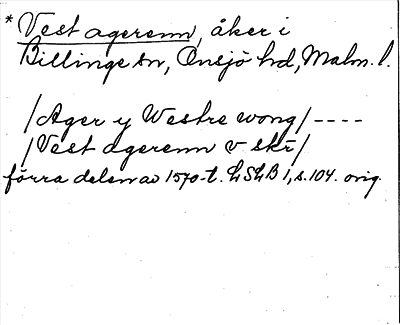 * Vest agerenn, åker i
Billinge sn, Onsjö hd, Malm. l.
/Ager y Westre wong/ ----
/Vest agerenn v skr/
förra delen av 1570-t. LSLB 1, s. 104. orig.